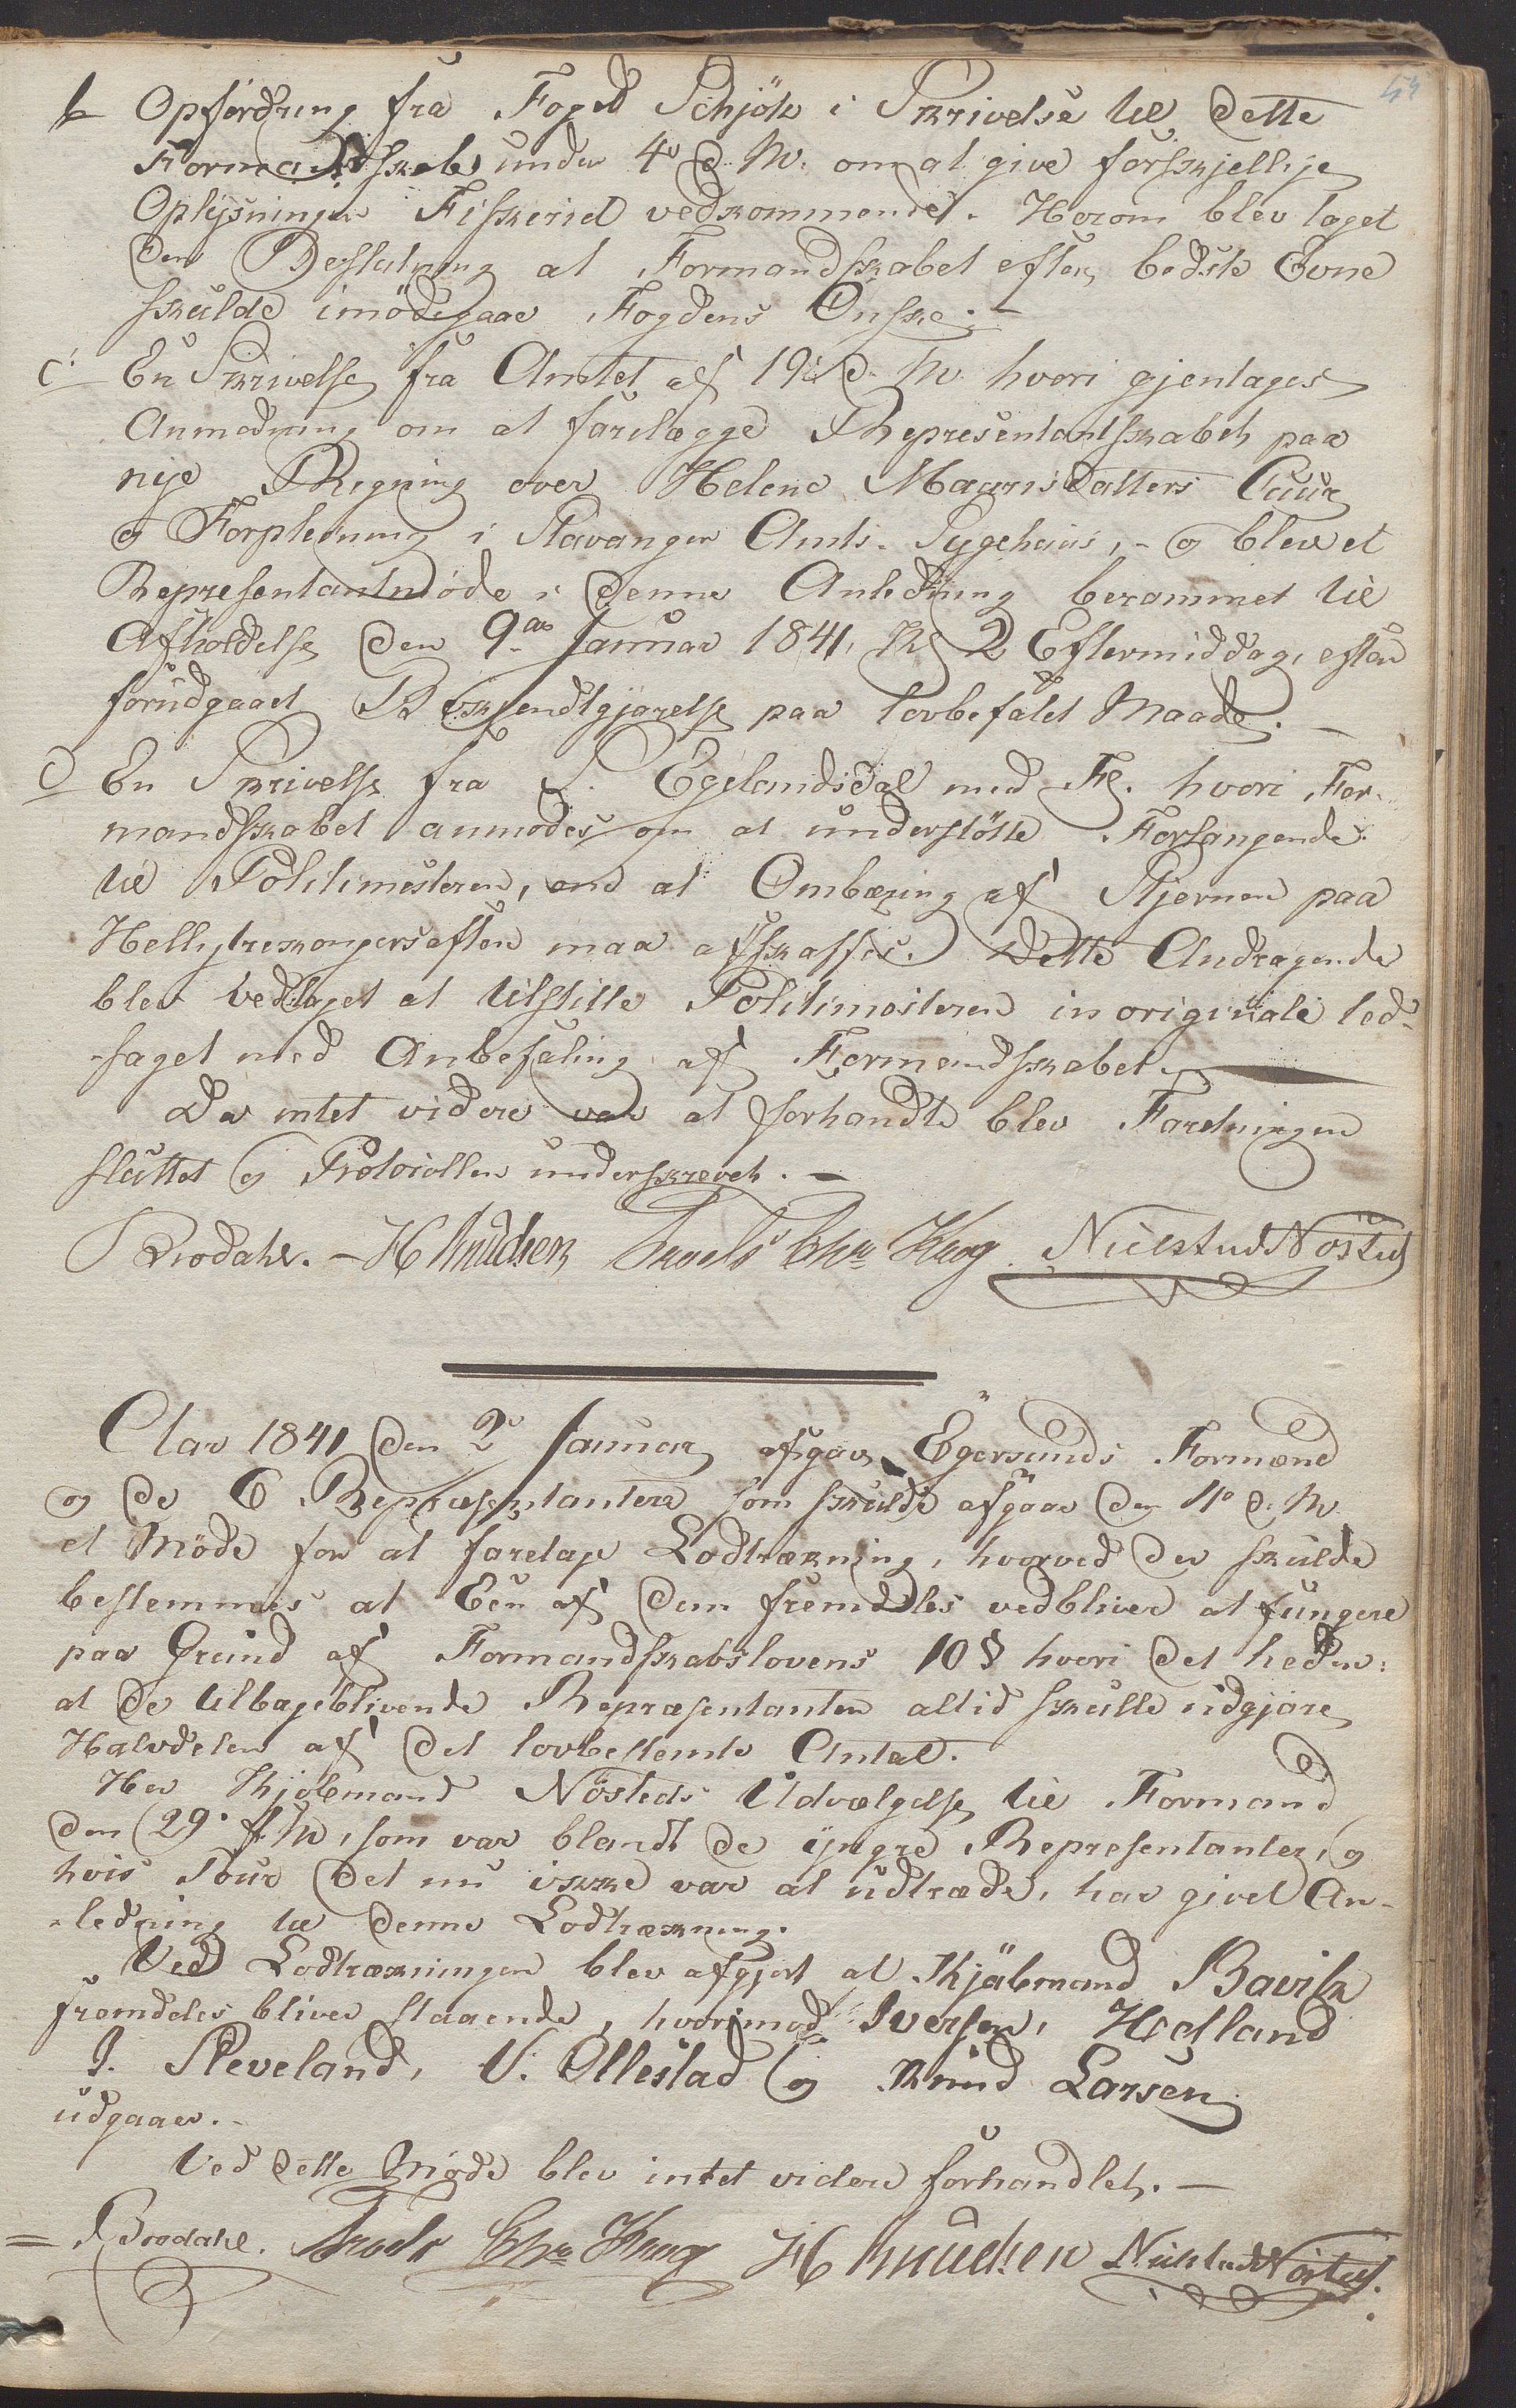 b Opfordring fra Foged Schjötz i Skrivelse til dette
Formandskab under 4de d. M. om at give forskjellige
Oplysninger Fiskeriet vedkommende. Herom blev taget
den Beslutning at Formandskabet efter bedste Evne
skulde imödegaae Fogdens Önske. –
c. En Skrivelse fra Amtet af 19de d. M. hvori gjentages
Anmodning om at forelægge Representantskabet paa
nye Regning over Helene Mauritsdatters Cuur
og Forpleining i Stavanger Amts-Sygehuus, – og blev et
Representantmöde i denne Anledning berammet til
Afholdelse den 9de Januar 1841, Kl 2 Eftermiddag, efter
forudgaaet Bekjendtgjørelse paa lovbefalet Maade. –
d En Skrivelse fra S. Egelandsdal med Fl. hvori For-
mandskabet anmodes om at understötte Forlangende
til Politimesteren, om at Ombæring af Stjernen paa
Helligtrekongersaften maa afskaffes. Dette Andragende
blev vedtaget at tilstille Politimesteren in originale led-
saget med Anbefaling af Formandskabet. –
Da intet videre var at forhandle blev Forretningen
sluttet og Protocollen underskrevet. –
Brodahl. – H Knudsen Troels Chr. Krog Nielstud Nösted
Aar 1841 den 2 Januar afgav Egersunds Formænd
og de 6 Repræsentantere som skulde afgaae den 11te d. M.
et Möde for at foretage Lodtrækning, hvorved der skulde
bestemmes at Een af dem fremdeles vedbliver at fungere
paa Grund af Formandskabslovens 10 § hvori det heder:
at de tilbageblivende Repræsentanter altid skulle udgjøre
Halvdelen af det lovbestemte Antal.
Her Kjøbmand Nösteds Udvælgelse til Formand
den 29. f. M, som var blandt de yngre Representanter, og
hvis Tour det nu ikke var at udtræde, har givet An-
ledning til denne Lodtrækning.
Ved Lodtrækningen blev afgjort at Kjøbmand Bavitz
fremdeles bliver staaende, hvorimod Iversen, Hetland
J. Sleveland, V. Ollestad og Knud Larsen
udgaaer. –
Ved dette Møde blev intet videre forhandlet. –
= Brodahl. Troels Chr. Krog H Knudsen Nielstud Nösted.